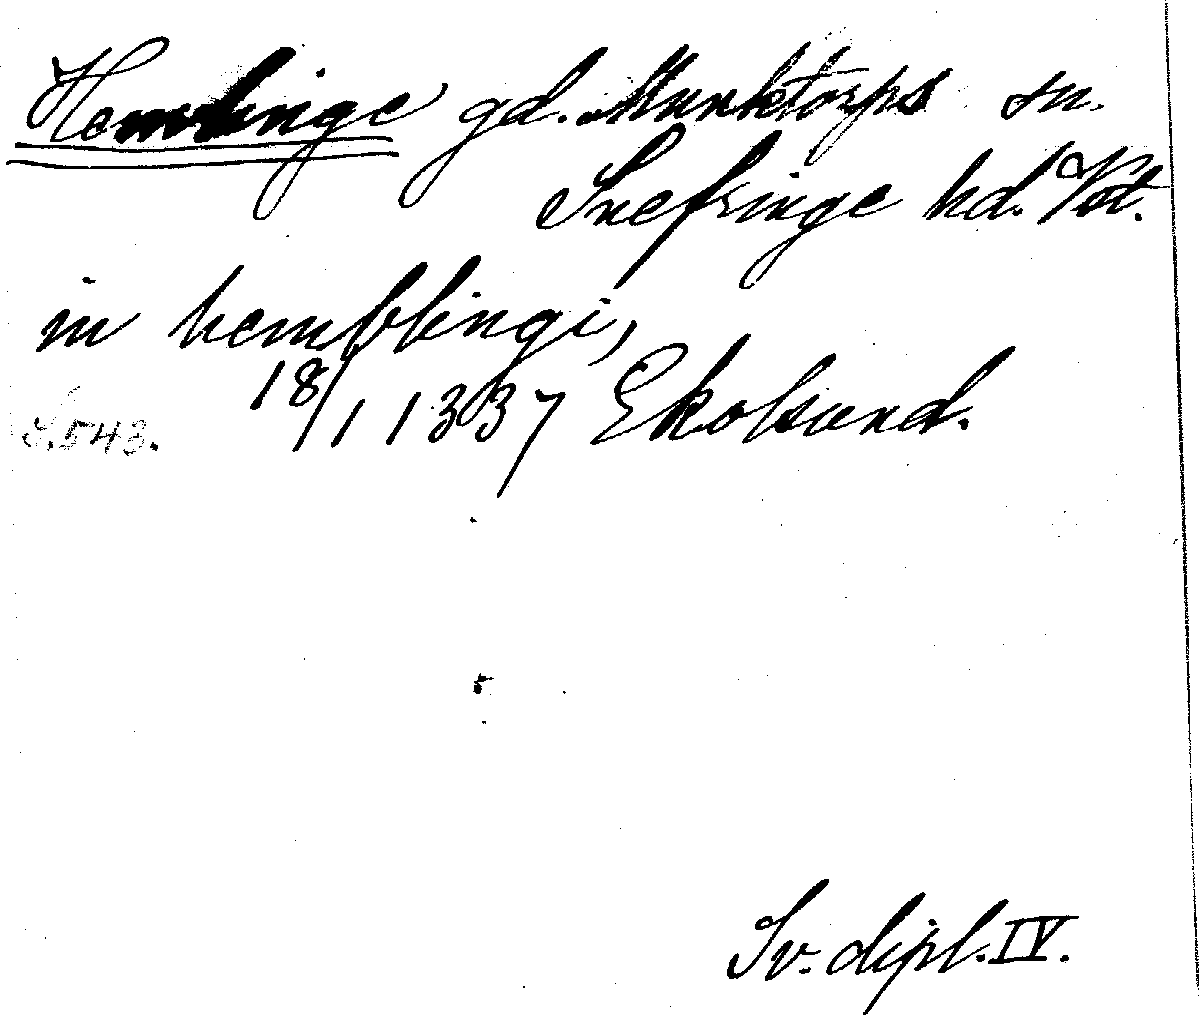 Hemlinge gd. Munktorps sn.
Snefringe hd. Vst.
in hemblingi,
18/1 1337 Ekolsund.
S. 543.
Sv. dipl. IV.